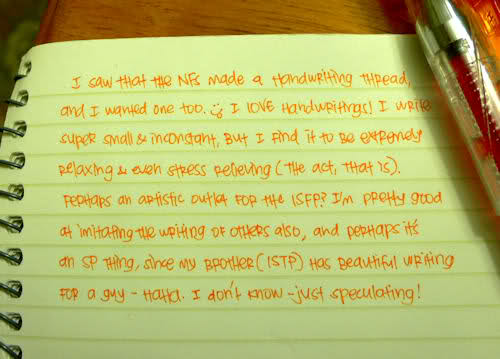 I saw that the NFs made a handwriting thread,
and I wanted one too. :) I love handwritings! I write
super small & inconstant, but I find it to be extremely
relaxing & even stress relieving (the act, that is).
Perhaps an artistic outlet for the ISFP? I'm pretty good
at imitating the writing of others also, and perhaps it's
an SP thing, since my brother (ISTP) has beautiful writing
for a guy - haha. I don't know - just speculating!